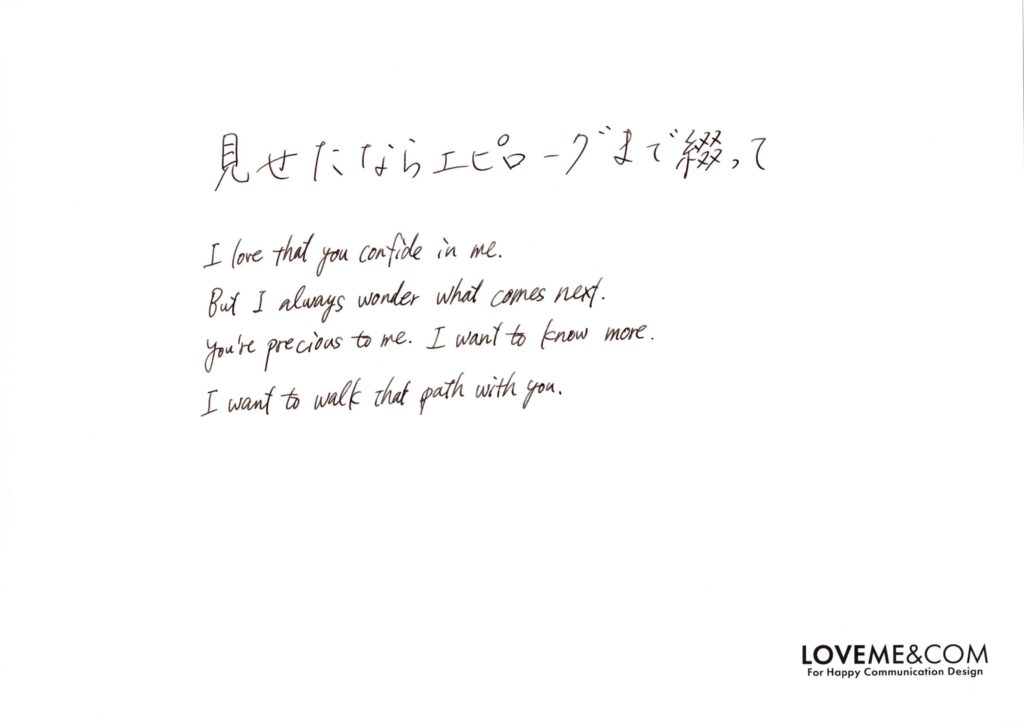 見せたならエピローグまで綴って
I love that you confide in me.
But I always wonder what comes next.
You're precious to me. I want to know more.
I want to walk that path with you.
LOVEME&COM
For Happy Communication Design